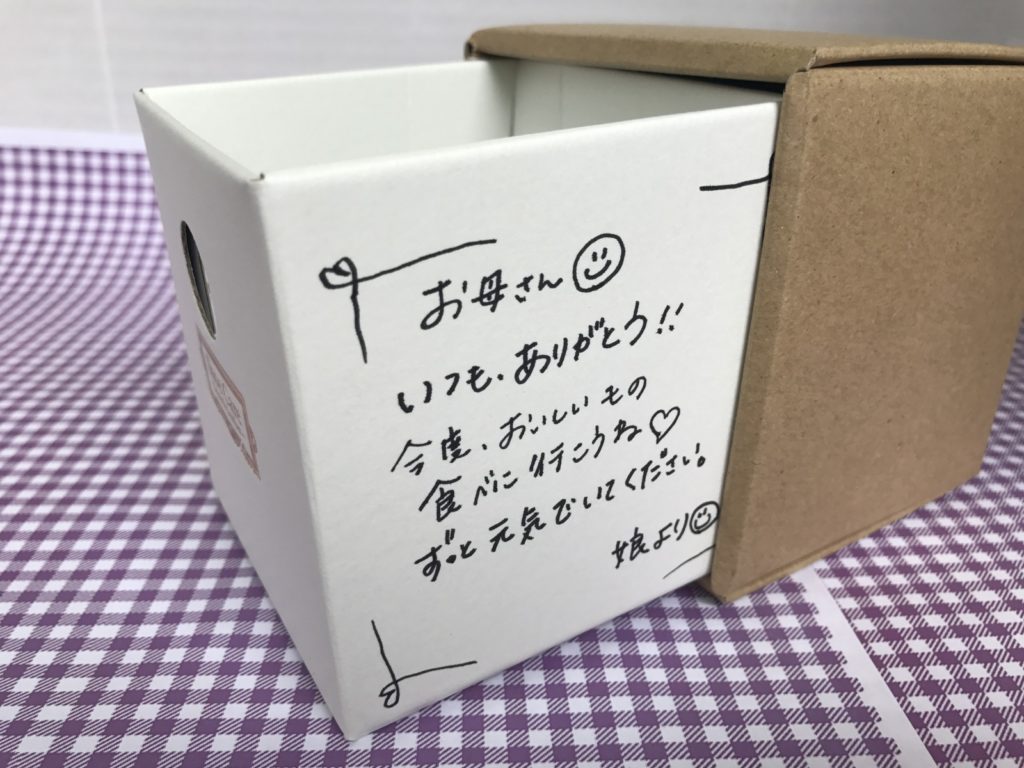 お母さん
いつも、ありがとう!!
今度、おいしいもの
食べに行こうね♡
ずっと元気でいてください。
娘より